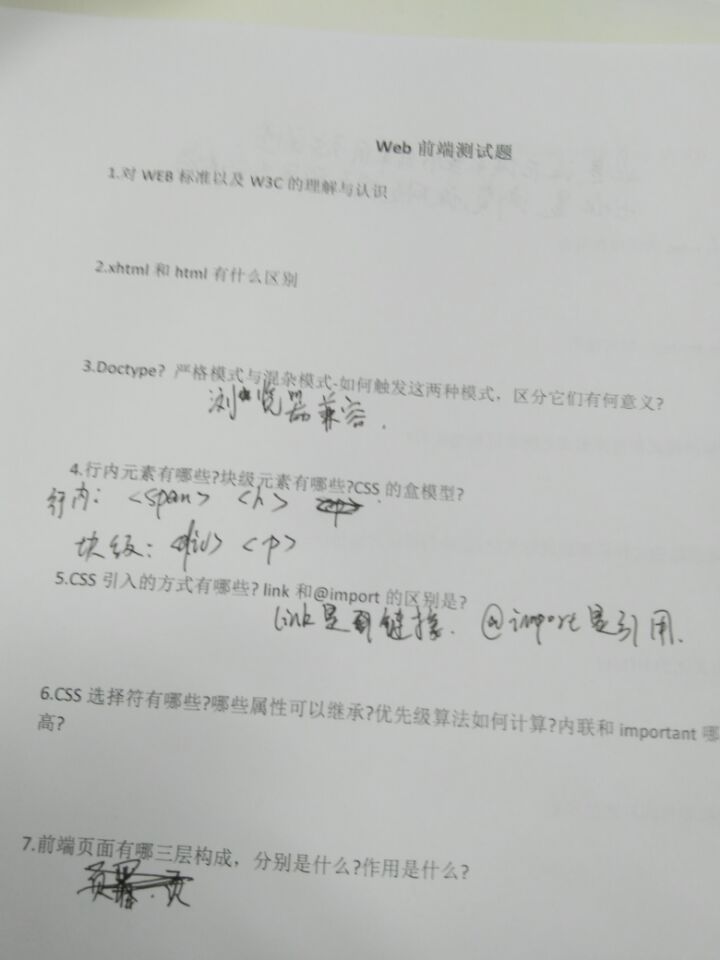 Web 前端测试题
1.对 WEB 标准以及 W3C 的理解与认识
2.xhtml 和 html 有什么区别
3.Doctype? 严格模式与混杂模式-如何触发这两种模式，区分它们有何意义?
浏览器兼容.
4.行内元素有哪些?块级元素有哪些?CSS 的盒模型?
行内: <span> <h>
块级: <div> <p>
5.CSS 引入的方式有哪些? link 和@import 的区别是?
link是链接. @import是引用.
6.CSS 选择符有哪些?哪些属性可以继承?优先级算法如何计算?内联和 important 哪
高?
7.前端页面有哪三层构成，分别是什么?作用是什么?